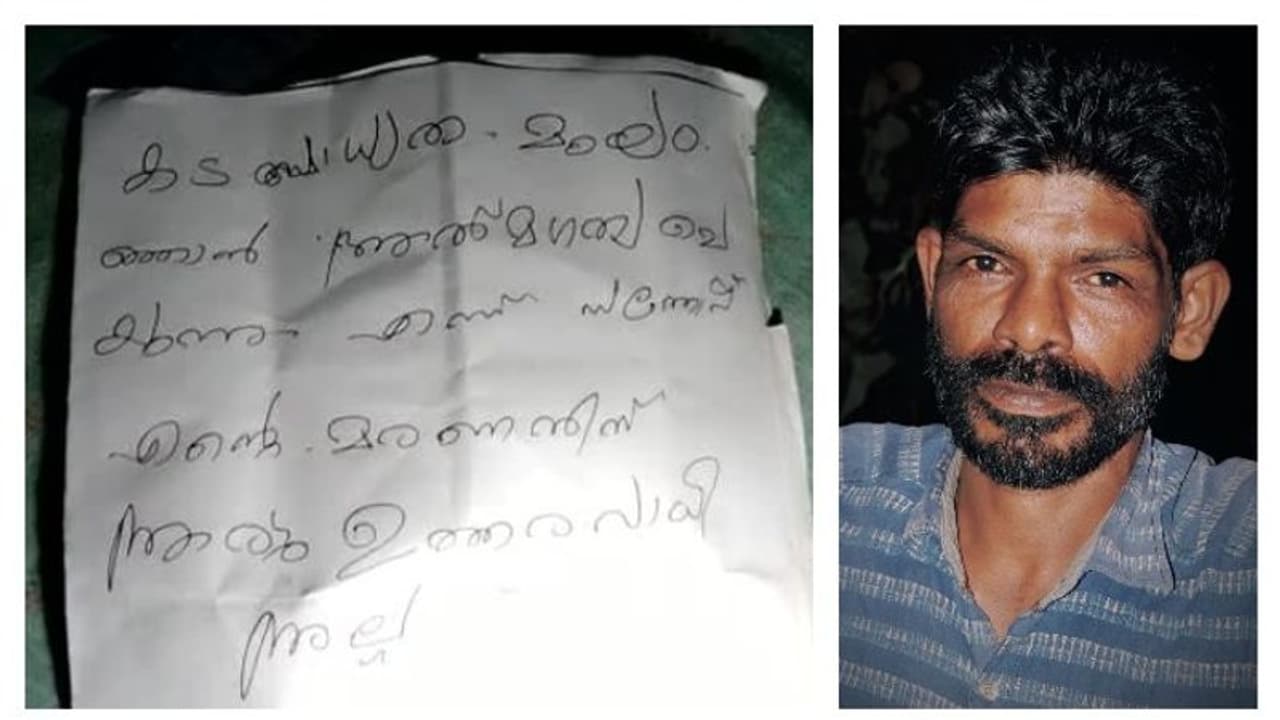 കട ബാധ്യത. മൂലം.
ഞാൻ ആത്മഗത്യ ചെ
യ്യുന്നു എന്ന് സന്തോഷ്
എന്റെ. മരണത്തിന്
ആരും ഉത്തരവാദി
അല്ല